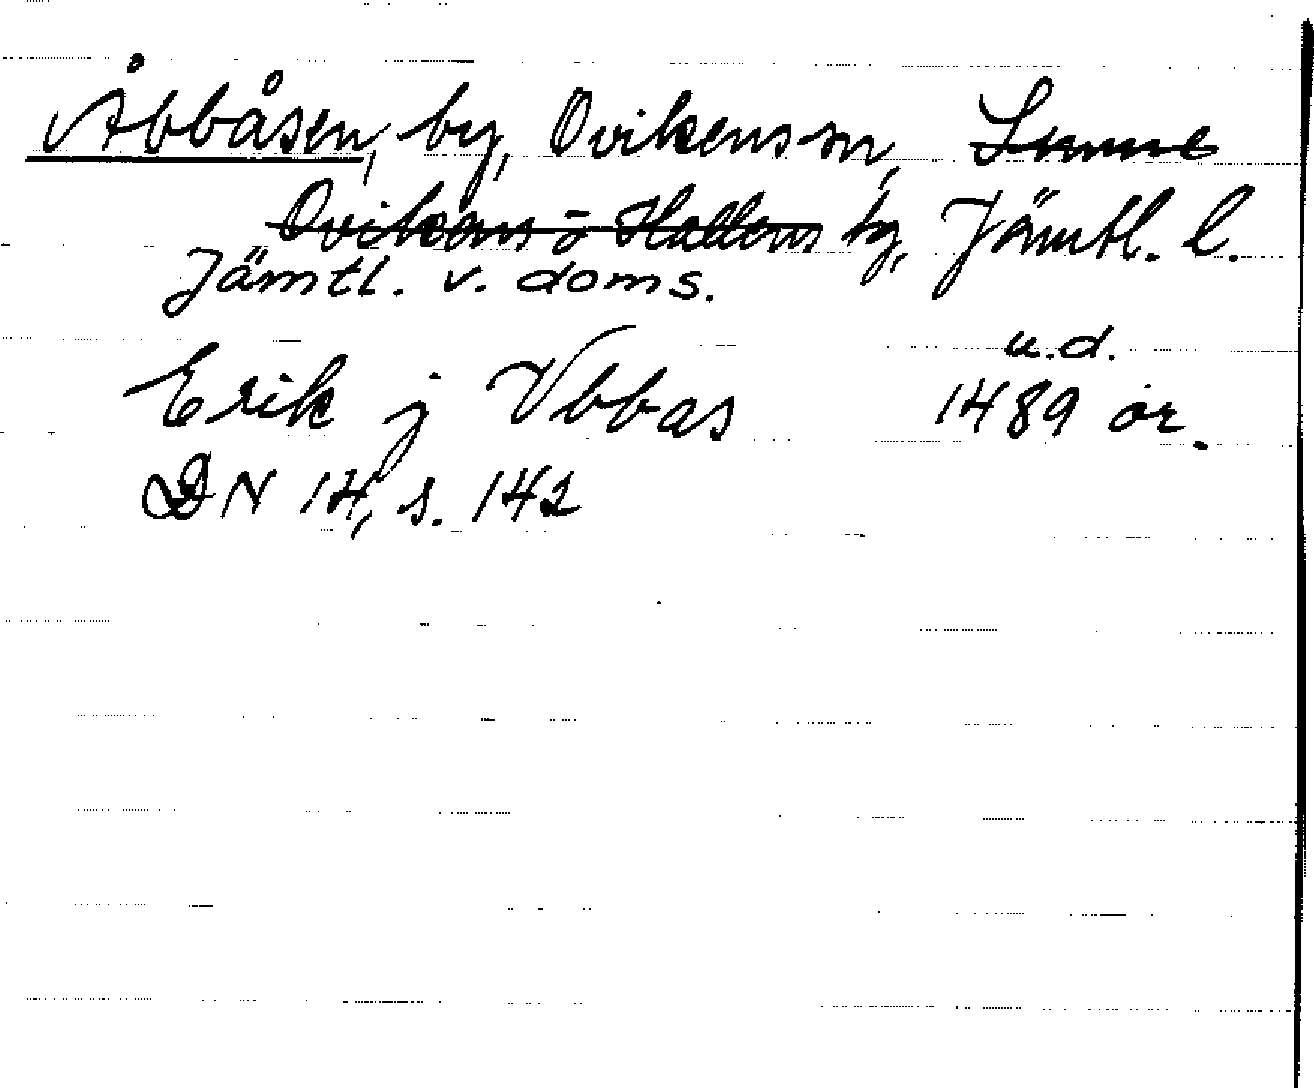 Åbbåsen, by, Ovikens sn, Sunne
Ovikens o Hallens tg, Jämtl. l.
Jämtl. v. doms.
u.d.
Erik j Vbbas 1489 or.
DN 14, s. 142